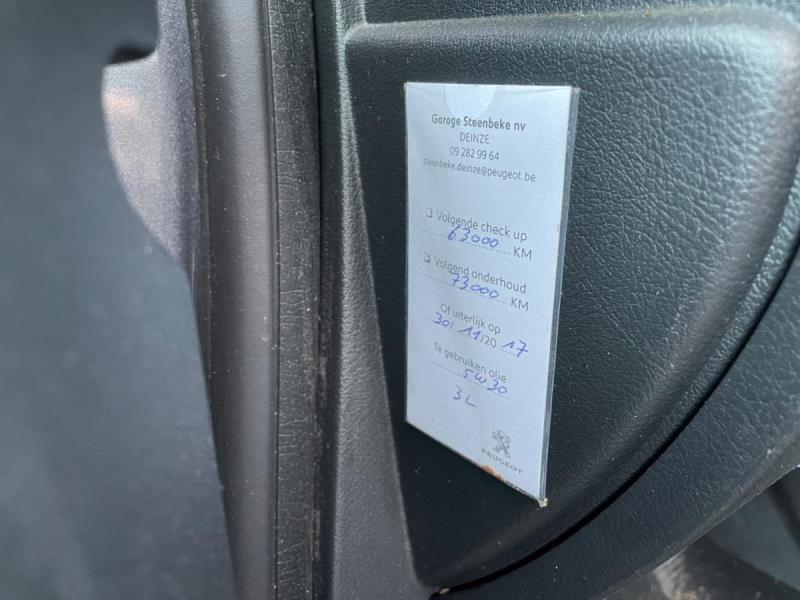 Garage Steenbeke nv
DEINZE
09 282 99 64
steenbeke.deinze@peugeot.be
❑ Volgende check up
63000 KM
❑ Volgend onderhoud
73000 KM
Of uiterlijk op
30/ 11/20 17
Te gebruiken olie
5W30
3L
PEUGEOT